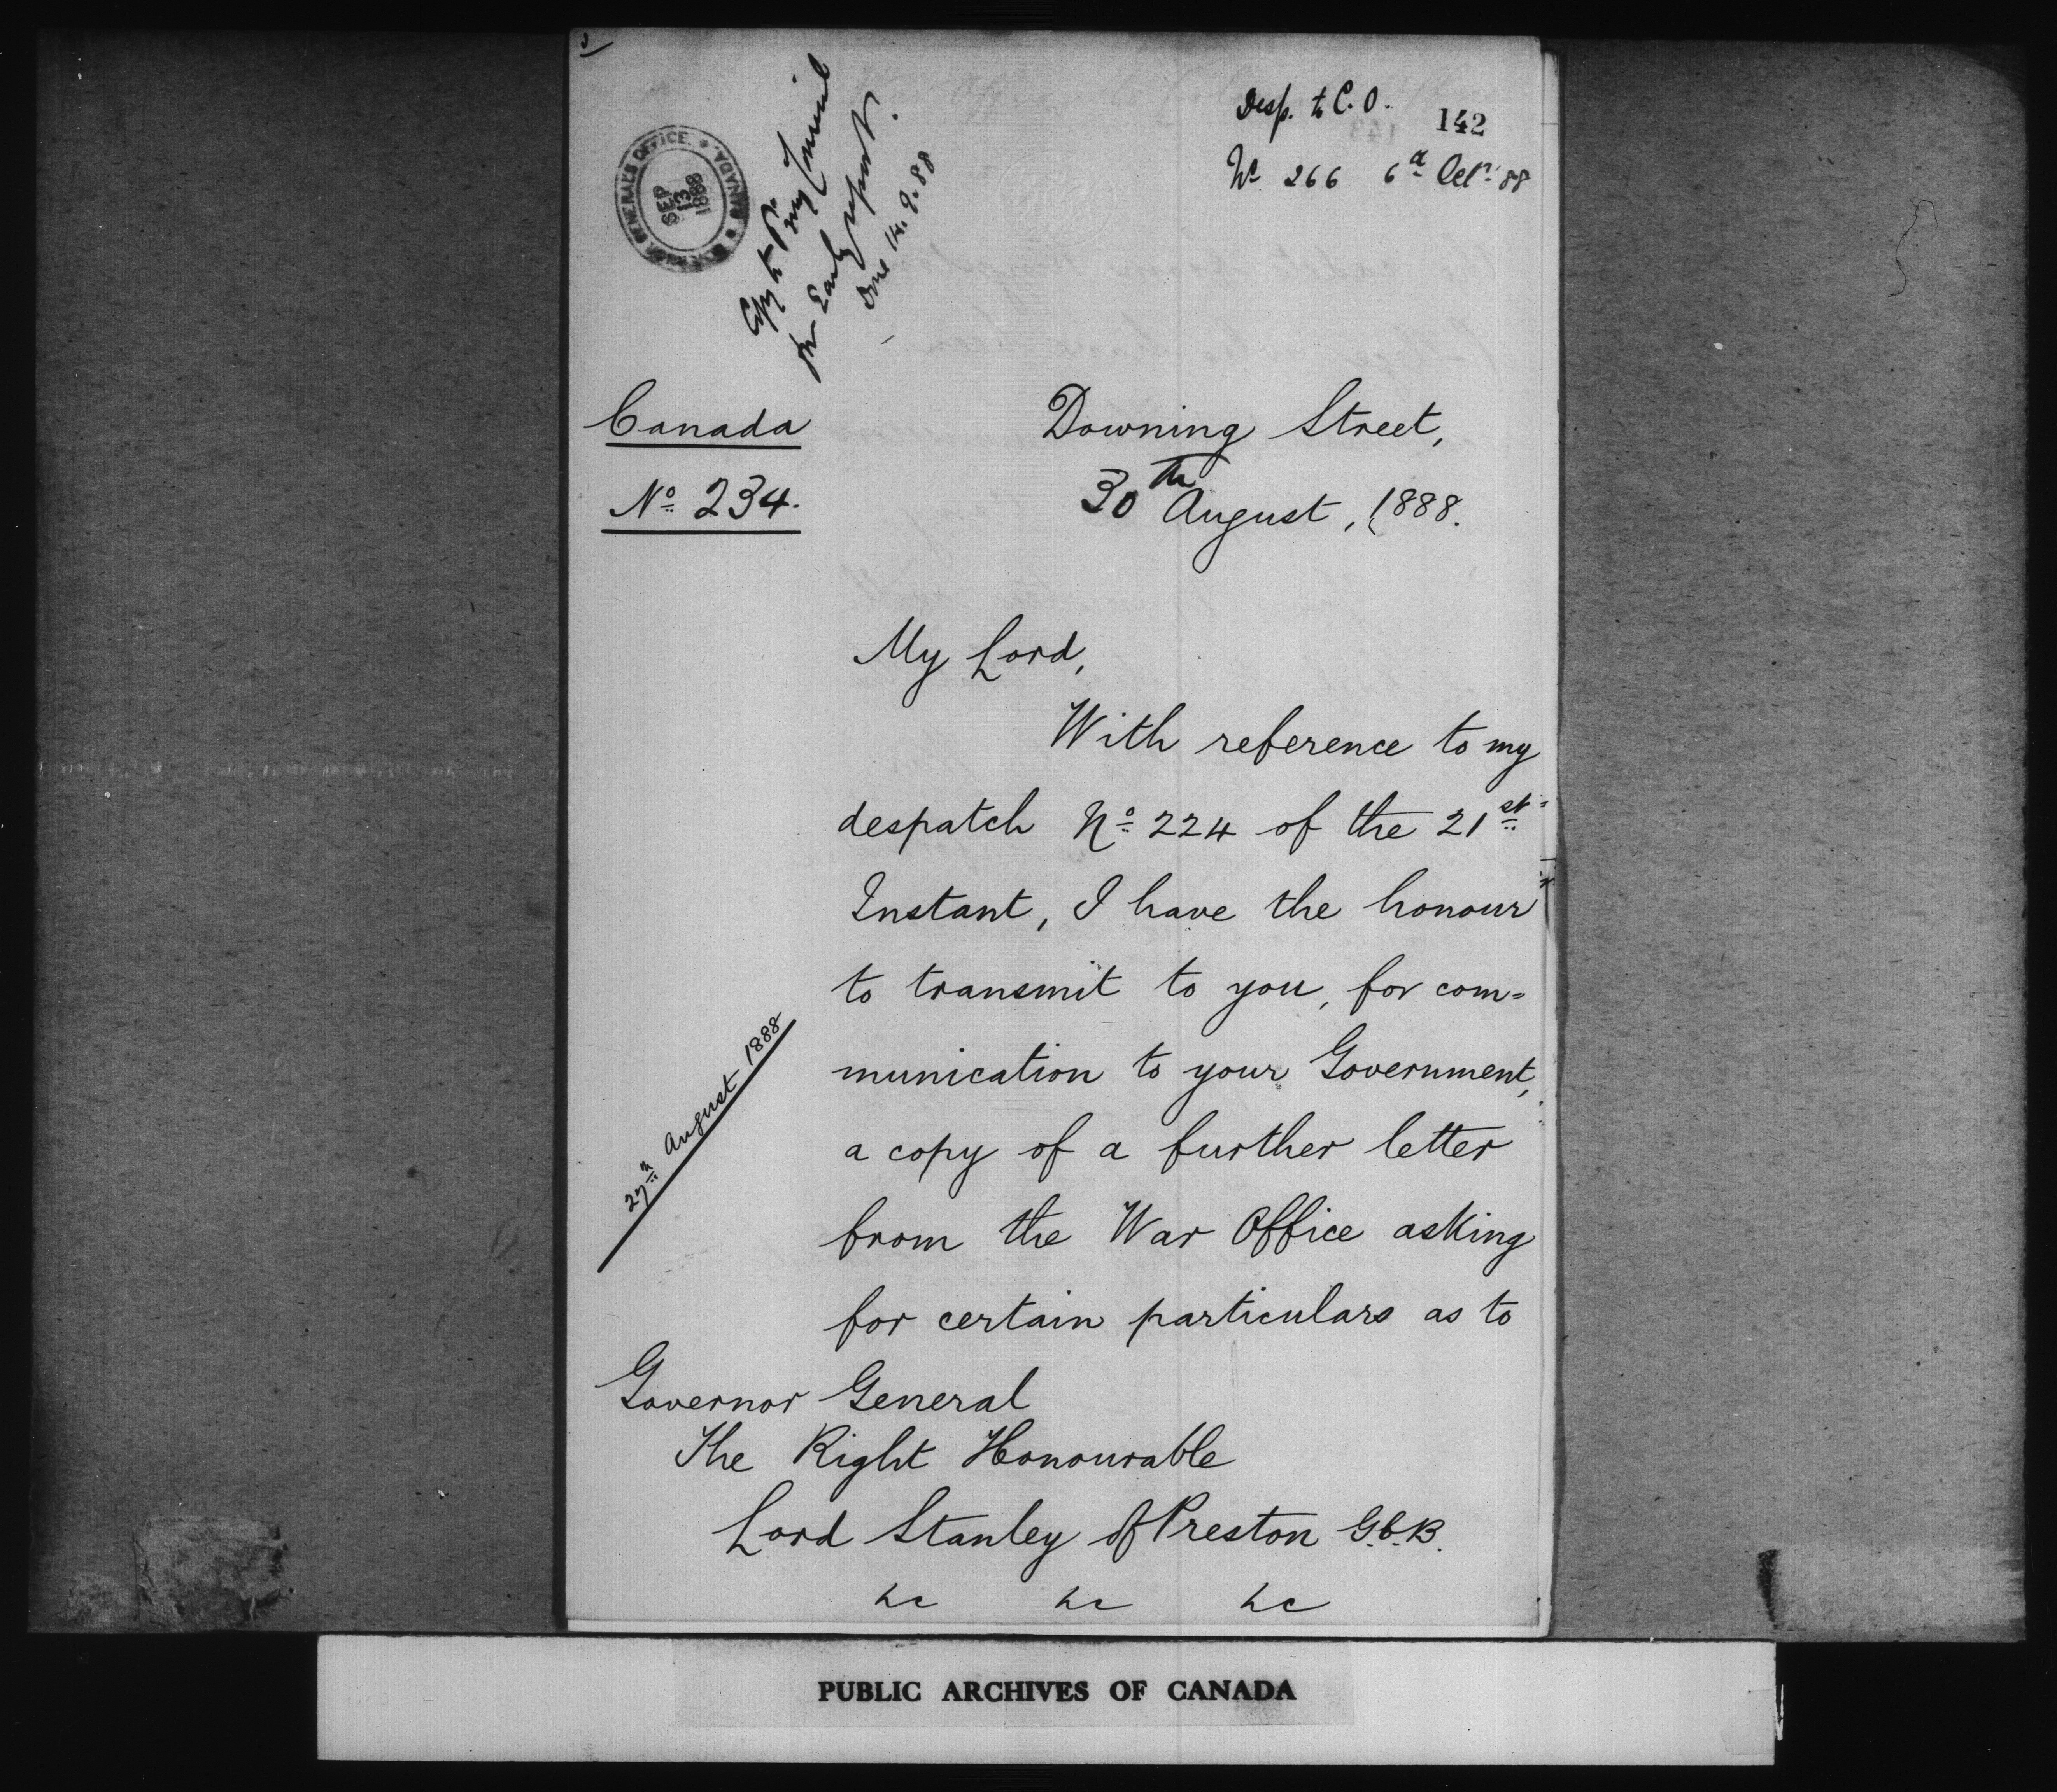 Desp. to C.O.
142
No 266 6th Octr '88
GOVERNOR GENERAL'S OFFICE. * CANADA. *
SEP
13
1888
Copy to Privy Council
for Early report.
Done 14.9.88
Canada
No 234.
Downing Street,
30th August, 1888.
My Lord,
With reference to my
despatch No 224 of the 21st
Instant, I have the honour
to transmit to you, for com=
munication to your Government,
a copy of a further letter
from the War Office asking
for certain particulars as to
27th August 1888
Governor General
The Right Honourable
Lord Stanley of Preston G.C.B.
&c &c &c
PUBLIC ARCHIVES OF CANADA